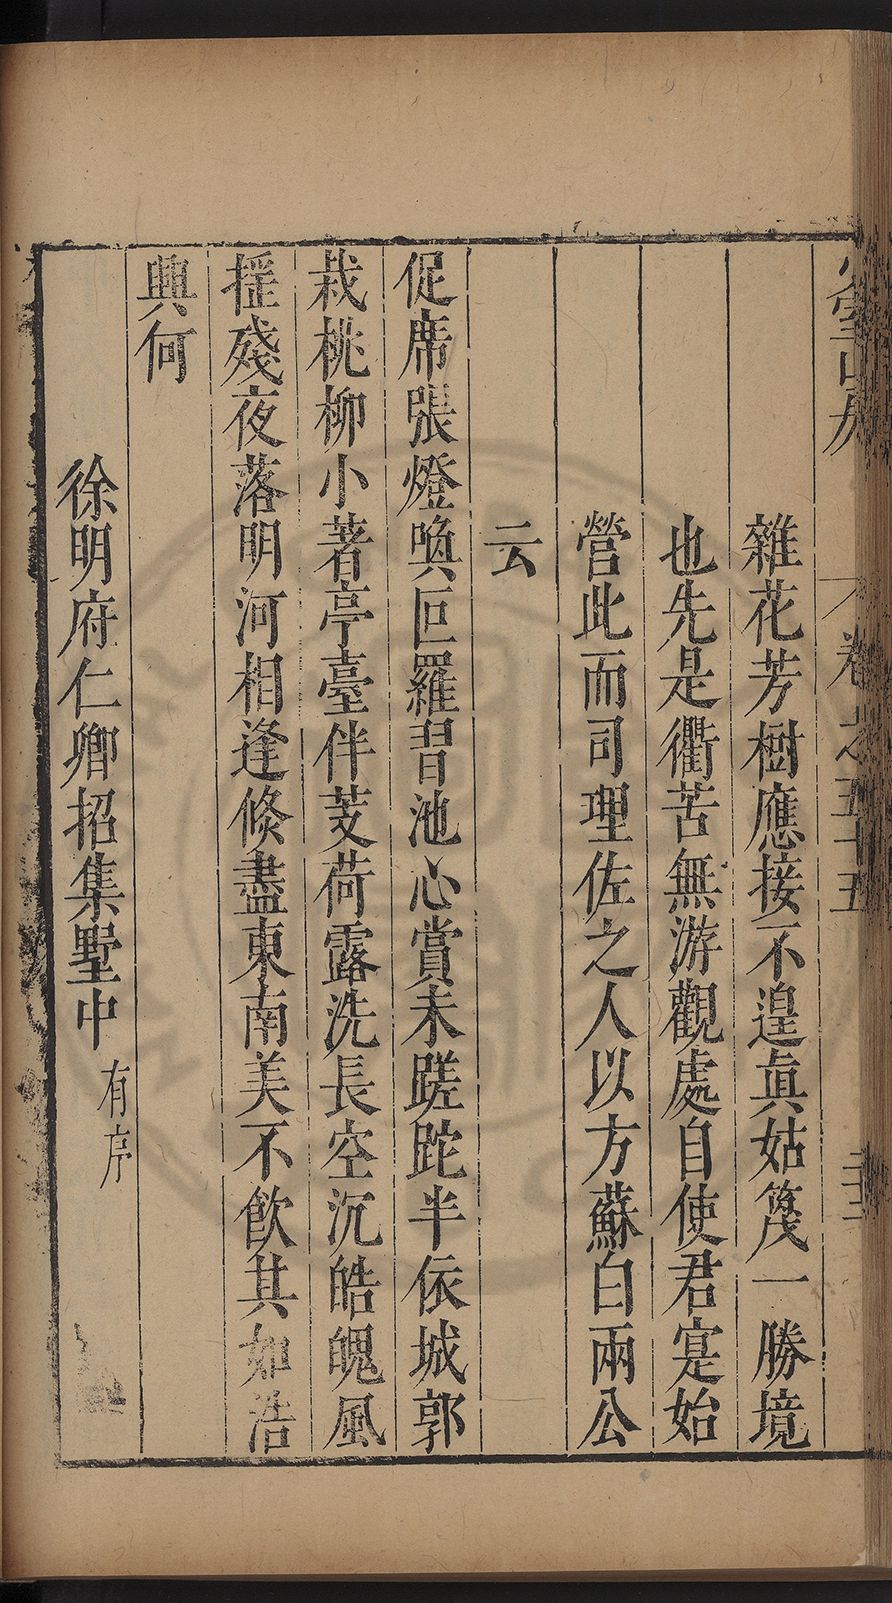 卷之五十五
雜花芳樹應接不遑眞姑篾一勝境
也先是衢苦無游觀處自使君寔始
營此而司理佐之人以方蘇白兩公
云
促席張燈喚叵羅習池心賞未蹉跎半依城郭
栽桃柳小著亭臺伴芰荷露洗長空沉皓魄風
摇殘夜落明河相逢倐盡東南美不飲其如浩
興何
徐明府仁卿招集墅中有序